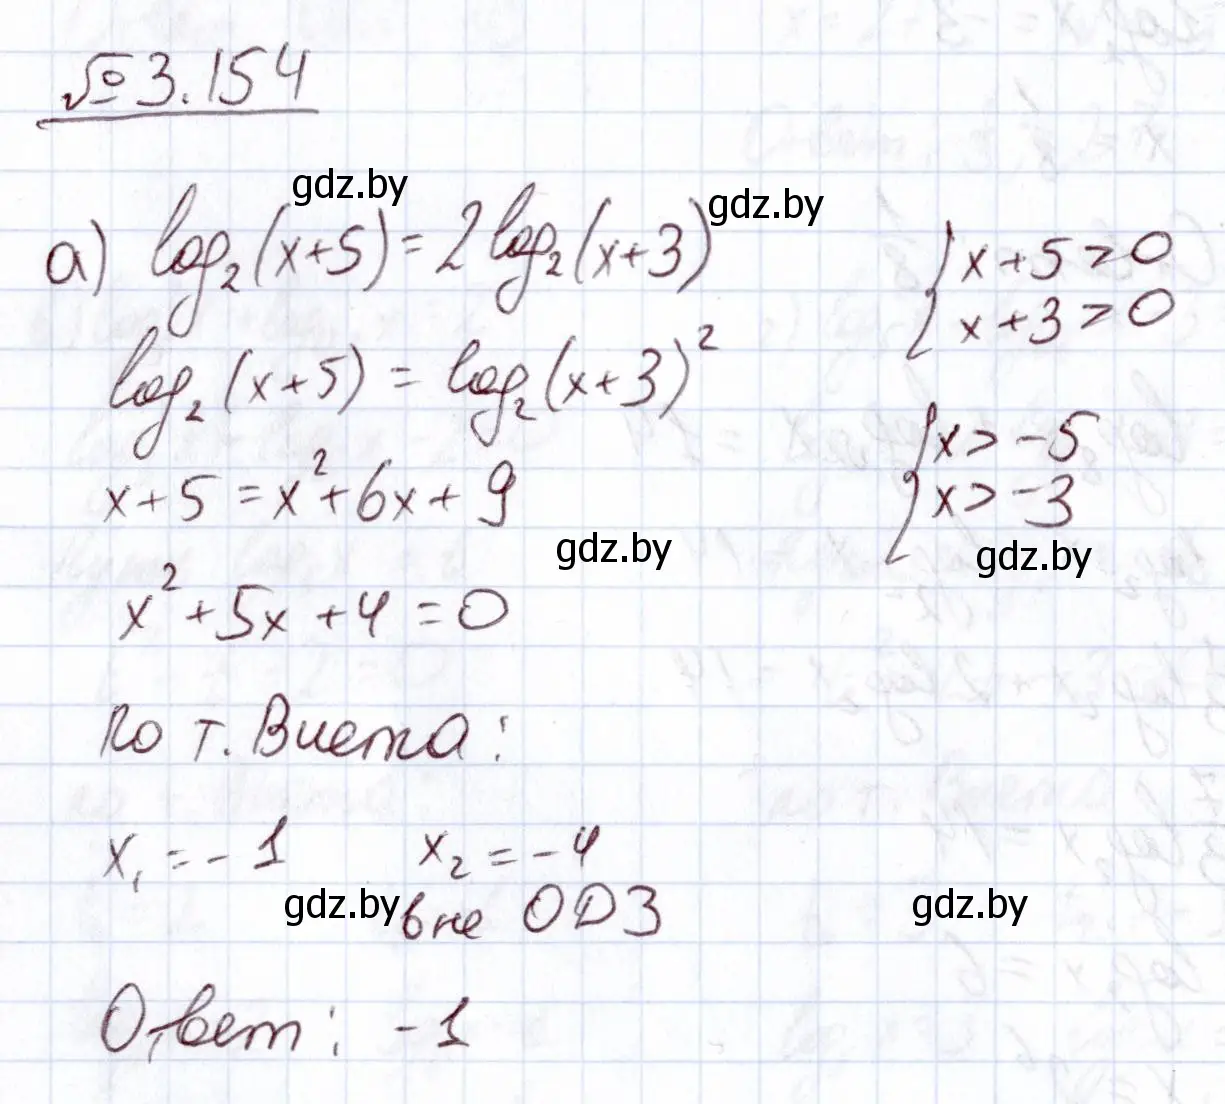 № 3.154
gdz.by
а) log₂(x+5) = 2log₂(x+3)
gdz.by
{x+5>0
x+3>0
log₂(x+5) = log₂(x+3)²
{x>-5
x>-3
x+5=x²+6x+9
gdz.by
gdz.by
x²+5x+4=0
по т. Виета:
x₁=-1 x₂=-4
gdz.by
вне ОДЗ
gdz.by
Ответ: -1